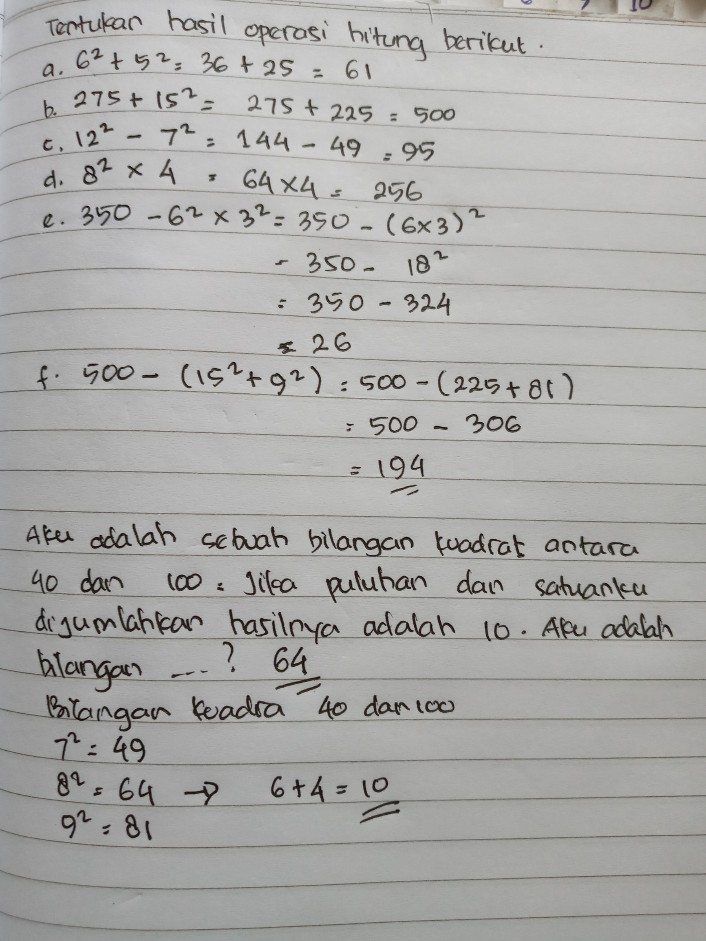 10
Tentukan hasil operasi hitung berikut.
a. 6² + 5² = 36 + 25 = 61
b. 275 + 15² = 275 + 225 = 500
c. 12² - 7² = 144 - 49 = 95
d. 8² × 4 = 64 × 4 = 256
e. 350 - 6² × 3² = 350 - (6×3)²
= 350 - 18²
= 350 - 324
= 26
f. 500 - (15² + 9²) = 500 - (225 + 81)
= 500 - 306
= 194
Aku adalah sebuah bilangan kuadrat antara
40 dan 100. Jika puluhan dan satuanku
dijumlahkan hasilnya adalah 10. Aku adalah
bilangan ....? 64
Bilangan kuadra 40 dan 100
7² = 49
8² = 64 → 6 + 4 = 10
9² = 81